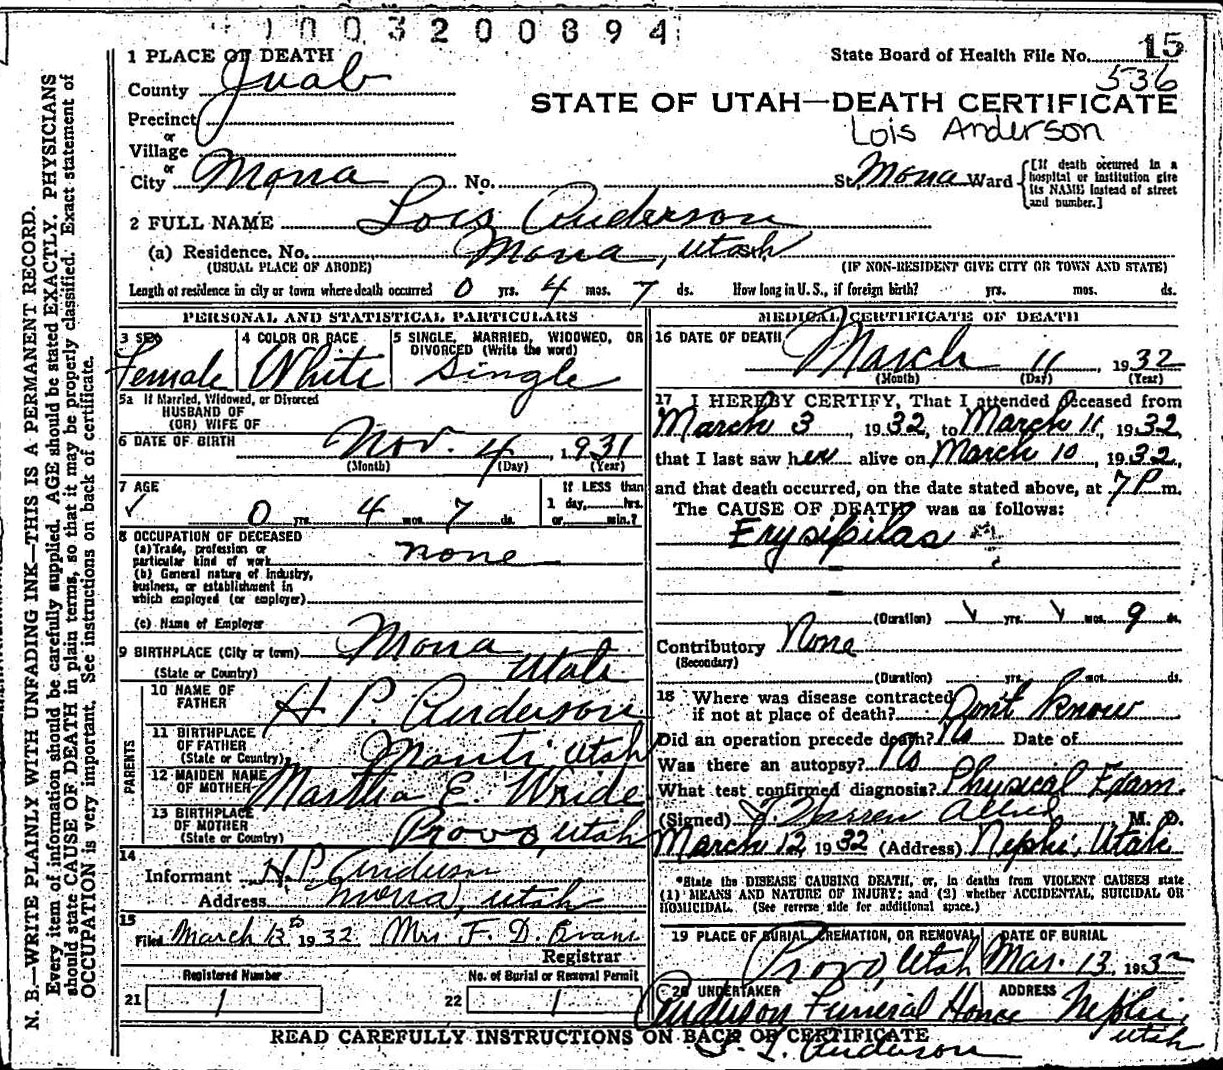 1003200894
State Board of Health File No. 15
536
STATE OF UTAH—DEATH CERTIFICATE
Lois Anderson
1 PLACE OF DEATH
County Juab
Precinct
or
Village
or
City Mona No. St. Mona Ward
[If death occurred in a hospital or institution give its NAME instead of street and number.]
2 FULL NAME Lois Anderson
(a) Residence. No. Mona, Utah
(USUAL PLACE OF ABODE) (IF NON-RESIDENT GIVE CITY OR TOWN AND STATE)
Length of residence in city or town where death occurred 0 yrs. 4 mos. 7 ds. How long in U. S., if foreign birth? yrs. mos. ds.
PERSONAL AND STATISTICAL PARTICULARS
3 SEX 4 COLOR OR RACE 5 SINGLE, MARRIED, WIDOWED, OR DIVORCED (Write the word)
Female White Single
5a If Married, Widowed, or Divorced
HUSBAND OF
(OR) WIFE OF
6 DATE OF BIRTH Nov. 4, 1931
(Month) (Day) (Year)
7 AGE If LESS than
✓ 0 yrs. 4 mos. 7 ds. 1 day, hrs.
or min.?
8 OCCUPATION OF DECEASED
(a) Trade, profession or
particular kind of work none
(b) General nature of industry,
business, or establishment in
which employed (or employer)
(c) Name of Employer
9 BIRTHPLACE (City or town) Mona
(State or Country) Utah
PARENTS
10 NAME OF
FATHER H. P. Anderson
11 BIRTHPLACE
OF FATHER
(State or Country) Manti, Utah
12 MAIDEN NAME
OF MOTHER Martha E. Wride
13 BIRTHPLACE
OF MOTHER
(State or Country) Provo, Utah
14
Informant H.P. Anderson
Address Mona, Utah
15
Filed March 13th 1932 Mrs F. D. Evans
Registrar
Registered Number No. of Burial or Removal Permit
21 1 22 1
MEDICAL CERTIFICATE OF DEATH
16 DATE OF DEATH
March 11, 1932
(Month) (Day) (Year)
17 I HEREBY CERTIFY, That I attended deceased from
March 3, 1932, to March 11, 1932,
that I last saw her alive on March 10, 1932,
and that death occurred, on the date stated above, at 7 P m.
The CAUSE OF DEATH was as follows:
Erysipilas
(Duration) yrs. mos. 9 ds.
Contributory None
(Secondary)
(Duration) yrs. mos. ds.
18 Where was disease contracted
if not at place of death? Don't know
Did an operation precede death? No Date of
Was there an autopsy? No
What test confirmed diagnosis? Physical Exam.
(Signed) Warren Allred M. D.
March 12, 1932 (Address) Nephi, Utah
*State the DISEASE CAUSING DEATH, or, in deaths from VIOLENT CAUSES state
(1) MEANS AND NATURE OF INJURY; and (2) whether ACCIDENTAL, SUICIDAL OR
HOMICIDAL. (See reverse side for additional space.)
19 PLACE OF BURIAL, CREMATION, OR REMOVAL DATE OF BURIAL
Provo, Utah Mar. 13, 1932
20 UNDERTAKER ADDRESS
Anderson Funeral Home Nephi,
Utah
READ CAREFULLY INSTRUCTIONS ON BACK OF CERTIFICATE
L. Anderson
N. B.—WRITE PLAINLY WITH UNFADING INK—THIS IS A PERMANENT RECORD.
Every item of information should be carefully supplied. AGE should be stated EXACTLY. PHYSICIANS
should state CAUSE OF DEATH in plain terms, so that it may be properly classified. Exact statement of
OCCUPATION is very important. See instructions on back of certificate.